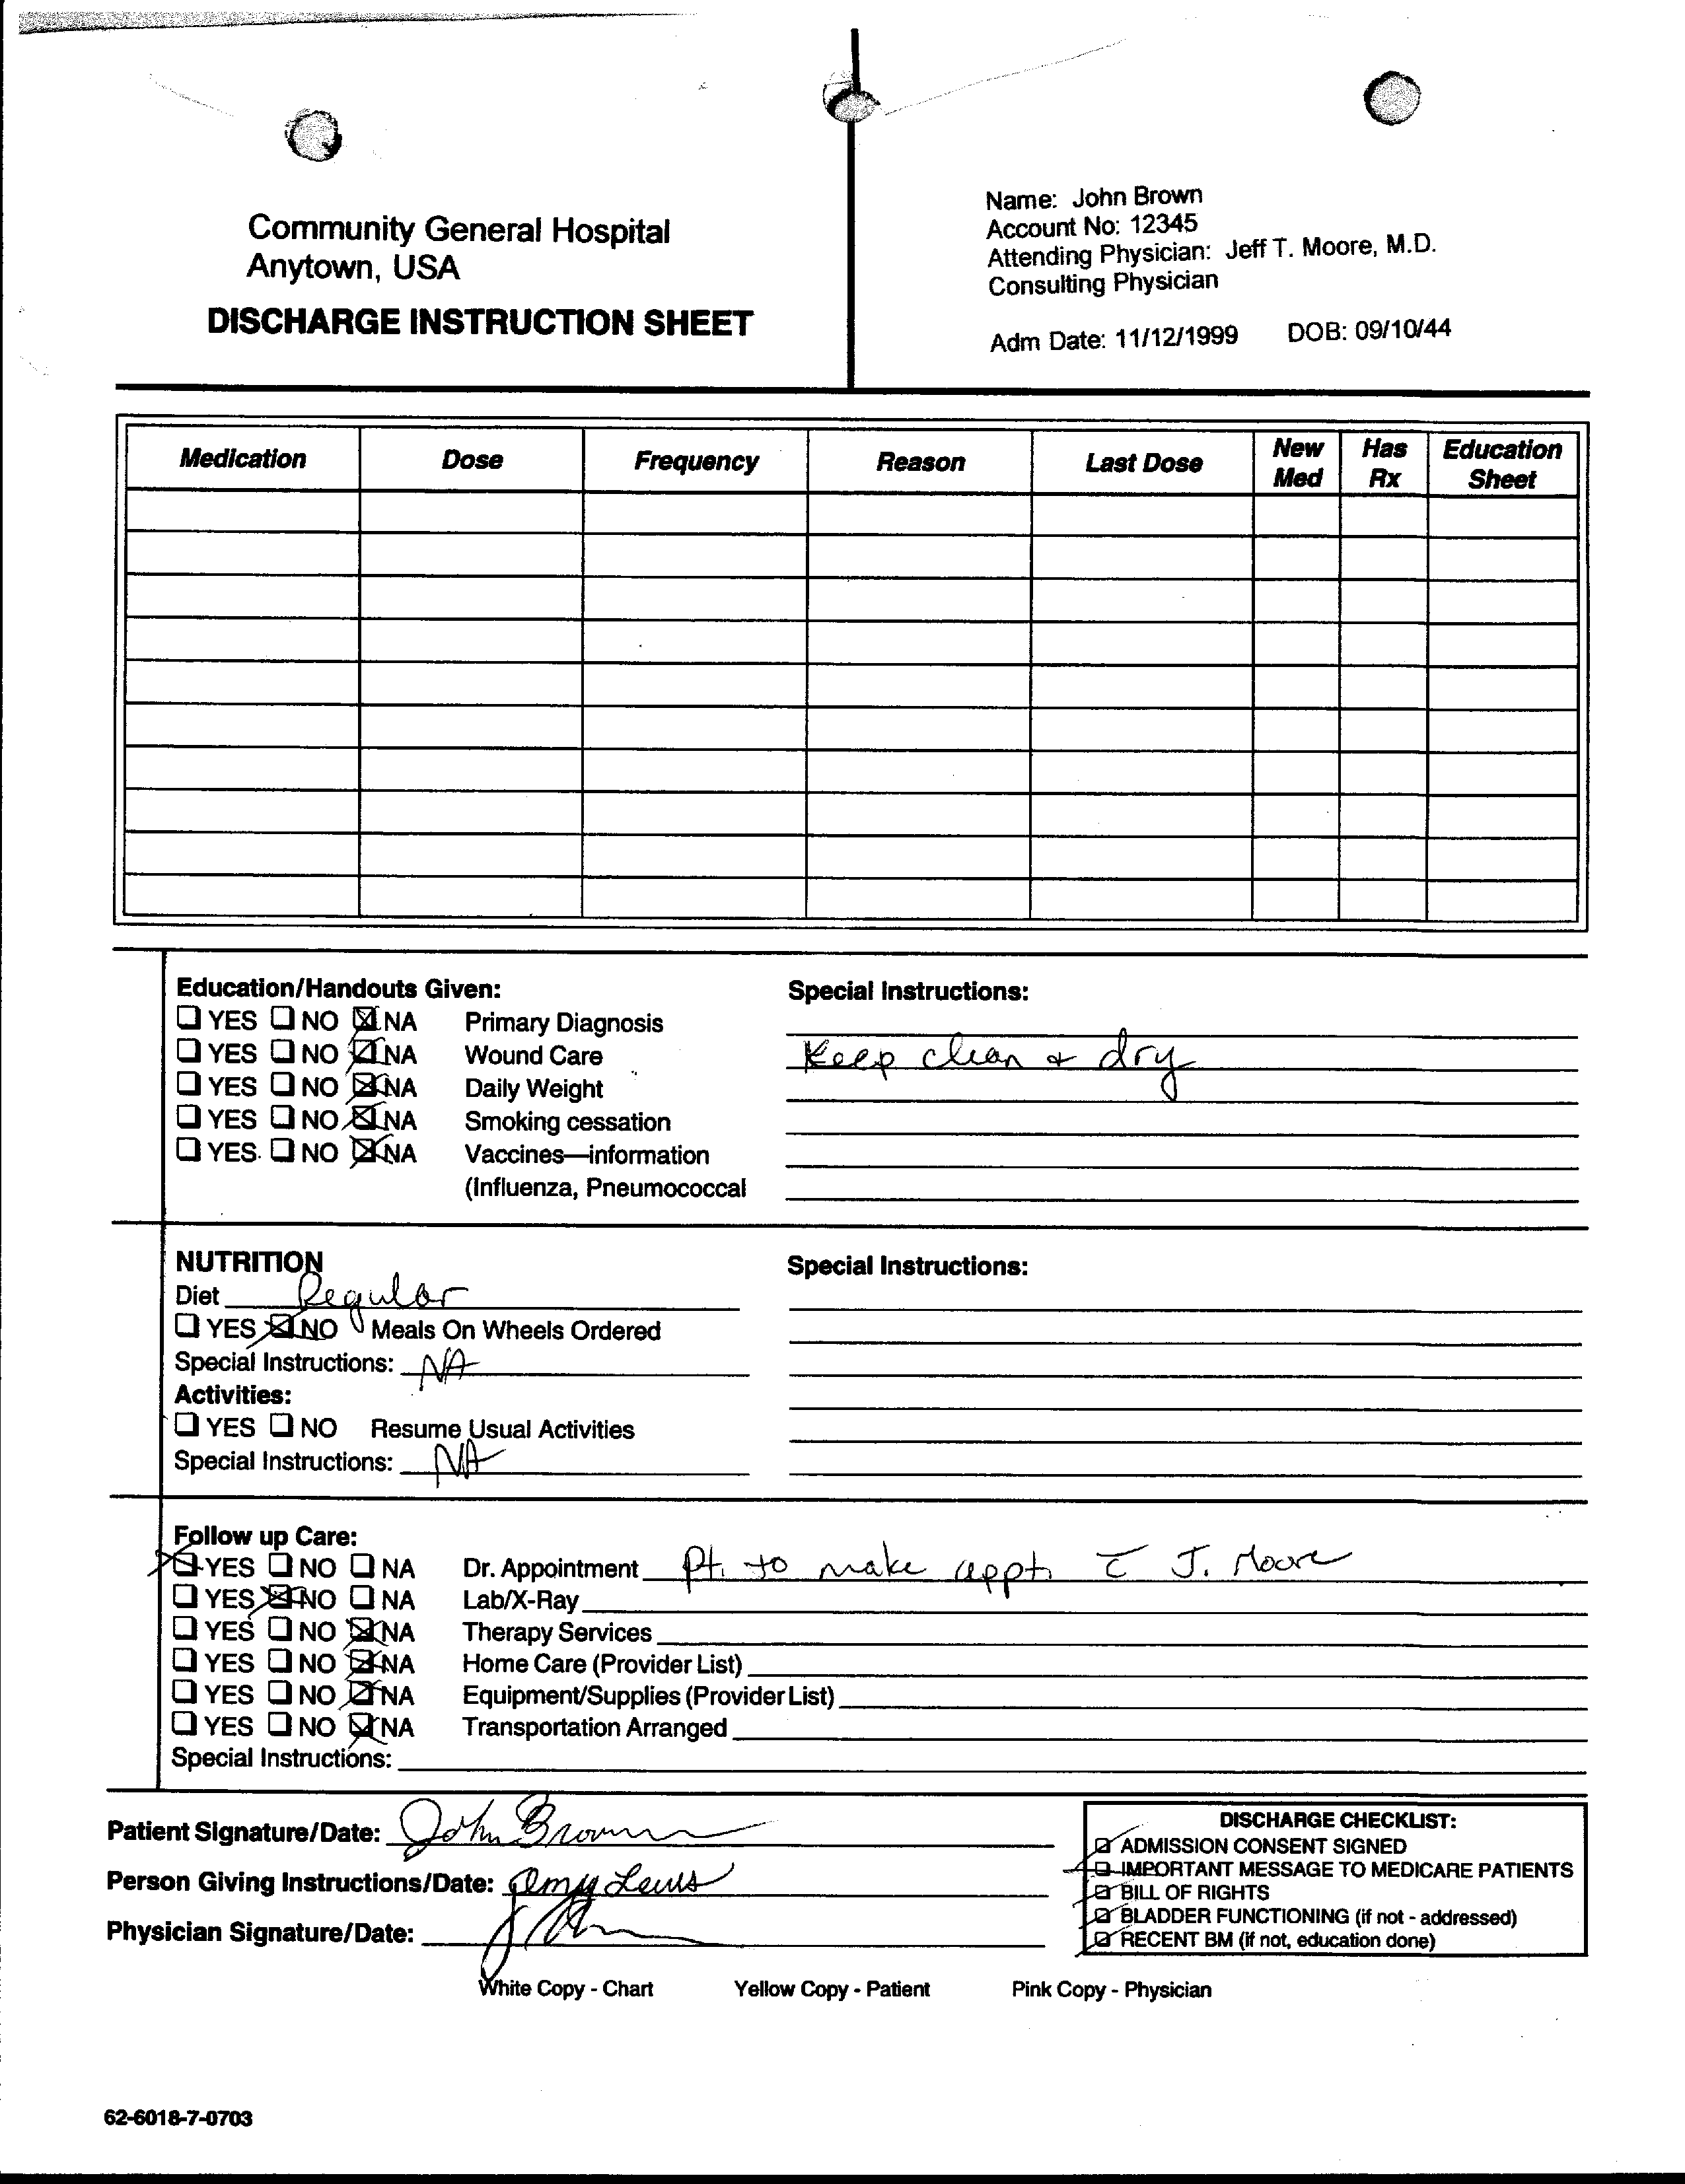 Community General Hospital
Anytown, USA
DISCHARGE INSTRUCTION SHEET
Name: John Brown
Account No: 12345
Attending Physician: Jeff T. Moore, M.D.
Consulting Physician
Adm Date: 11/12/1999 DOB: 09/10/44
Medication Dose Frequency Reason Last Dose New Med Has Rx Education Sheet
Education/Handouts Given:
☐ YES ☐ NO ☒ NA Primary Diagnosis
☐ YES ☐ NO ☒ NA Wound Care
☐ YES ☐ NO ☒ NA Daily Weight
☐ YES ☐ NO ☒ NA Smoking cessation
☐ YES ☐ NO ☒ NA Vaccines—information
(Influenza, Pneumococcal
Special Instructions:
Keep clean & dry
NUTRITION
Diet Regular
☐ YES ☒ NO Meals On Wheels Ordered
Special Instructions: NA
Activities:
☐ YES ☐ NO Resume Usual Activities
Special Instructions: NA
Special Instructions:
Follow up Care:
☒ YES ☐ NO ☐ NA Dr. Appointment Pt. to make appt. c̄ J. Moore
☐ YES ☒ NO ☐ NA Lab/X-Ray
☐ YES ☐ NO ☒ NA Therapy Services
☐ YES ☐ NO ☒ NA Home Care (Provider List)
☐ YES ☐ NO ☒ NA Equipment/Supplies (Provider List)
☐ YES ☐ NO ☒ NA Transportation Arranged
Special Instructions:
Patient Signature/Date: John Brown
Person Giving Instructions/Date: Amy Lewis
Physician Signature/Date:
DISCHARGE CHECKLIST:
☑ ADMISSION CONSENT SIGNED
☑ IMPORTANT MESSAGE TO MEDICARE PATIENTS
☑ BILL OF RIGHTS
☑ BLADDER FUNCTIONING (if not - addressed)
☑ RECENT BM (if not, education done)
White Copy - Chart Yellow Copy - Patient Pink Copy - Physician
62-6018-7-0703